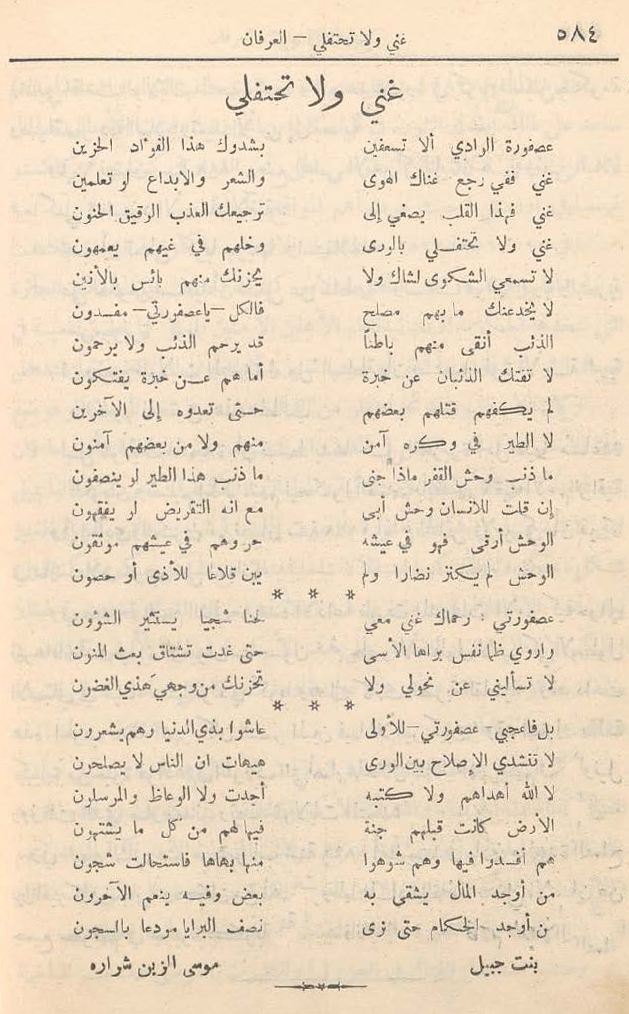 غني ولا تحتفلي – العرفان ٥٨٤
غني ولا تحتفلي
عصفورة الوادي ألا تسعفين بشدوك هذا الفؤاد الحزين
غني ففي رجع غناك الهوى والشعر والابداع لو تعلمين
غني فهذا القلب يصغي إلى ترجيعك العذب الرقيق الحنون
غني ولا تحتفلي بالورى وخلهم في غيهم يعمهون
لا تسمعي الشكوى لشاك ولا يحزنك منهم بائس بالأنين
لا يخدعنك ما بهم مصلح فالكل – يا عصفورتي – مفسدون
الذئب أنقى منهم باطناً قد يرحم الذئب ولا يرحمون
لا تفتك الذئبان عن خبرة أما هم عن خبرة يفتكون
لم يكفهم قتلهم بعضهم حتى تعدوه إلى الآخرين
لا الطير في وكره آمن منهم ولا من بعضهم آمنون
ما ذنب وحش القفر ماذا جنى ما ذنب هذا الطير لو ينصفون
إن قلت للانسان وحش أبى مع انه التقريض لو يفقهون
الوحش أرقى فهو في عيشه حر وهم في عيشهم موثقون
الوحش لم يكنز نضارا ولم يبن قلاعا للأذى أو حصون
* * *
عصفورتي رحماك غني معي لحنا شجيا يستثير الشؤون
واروي ظما نفس براها الأسى حتى غدت تشتاق بعث المنون
لا تسأليني عن نحولي ولا تحزنك من وجهي هذي الغضون
* * *
بل فاعجبي – عصفورتي – للأولى عاشوا بذي الدنيا وهم يشعرون
لا تنشدي الإصلاح بين الورى هيهات ان الناس لا يصلحون
لا الله أهداهم ولا كتبه أجدت ولا الوعاظ والمرسلون
الأرض كانت قبلهم جنة فيها لهم من كل ما يشتهون
هم أفسدوا فيها وهم شوهوا منها بهاها فاستحالت شجون
من أوجد المال يشقى به بعض وفيه ينعم الآخرون
من أوجد الحكام حتى نرى نصف البرايا مودعا بالسجون
بنت جبيل موسى الزين شراره